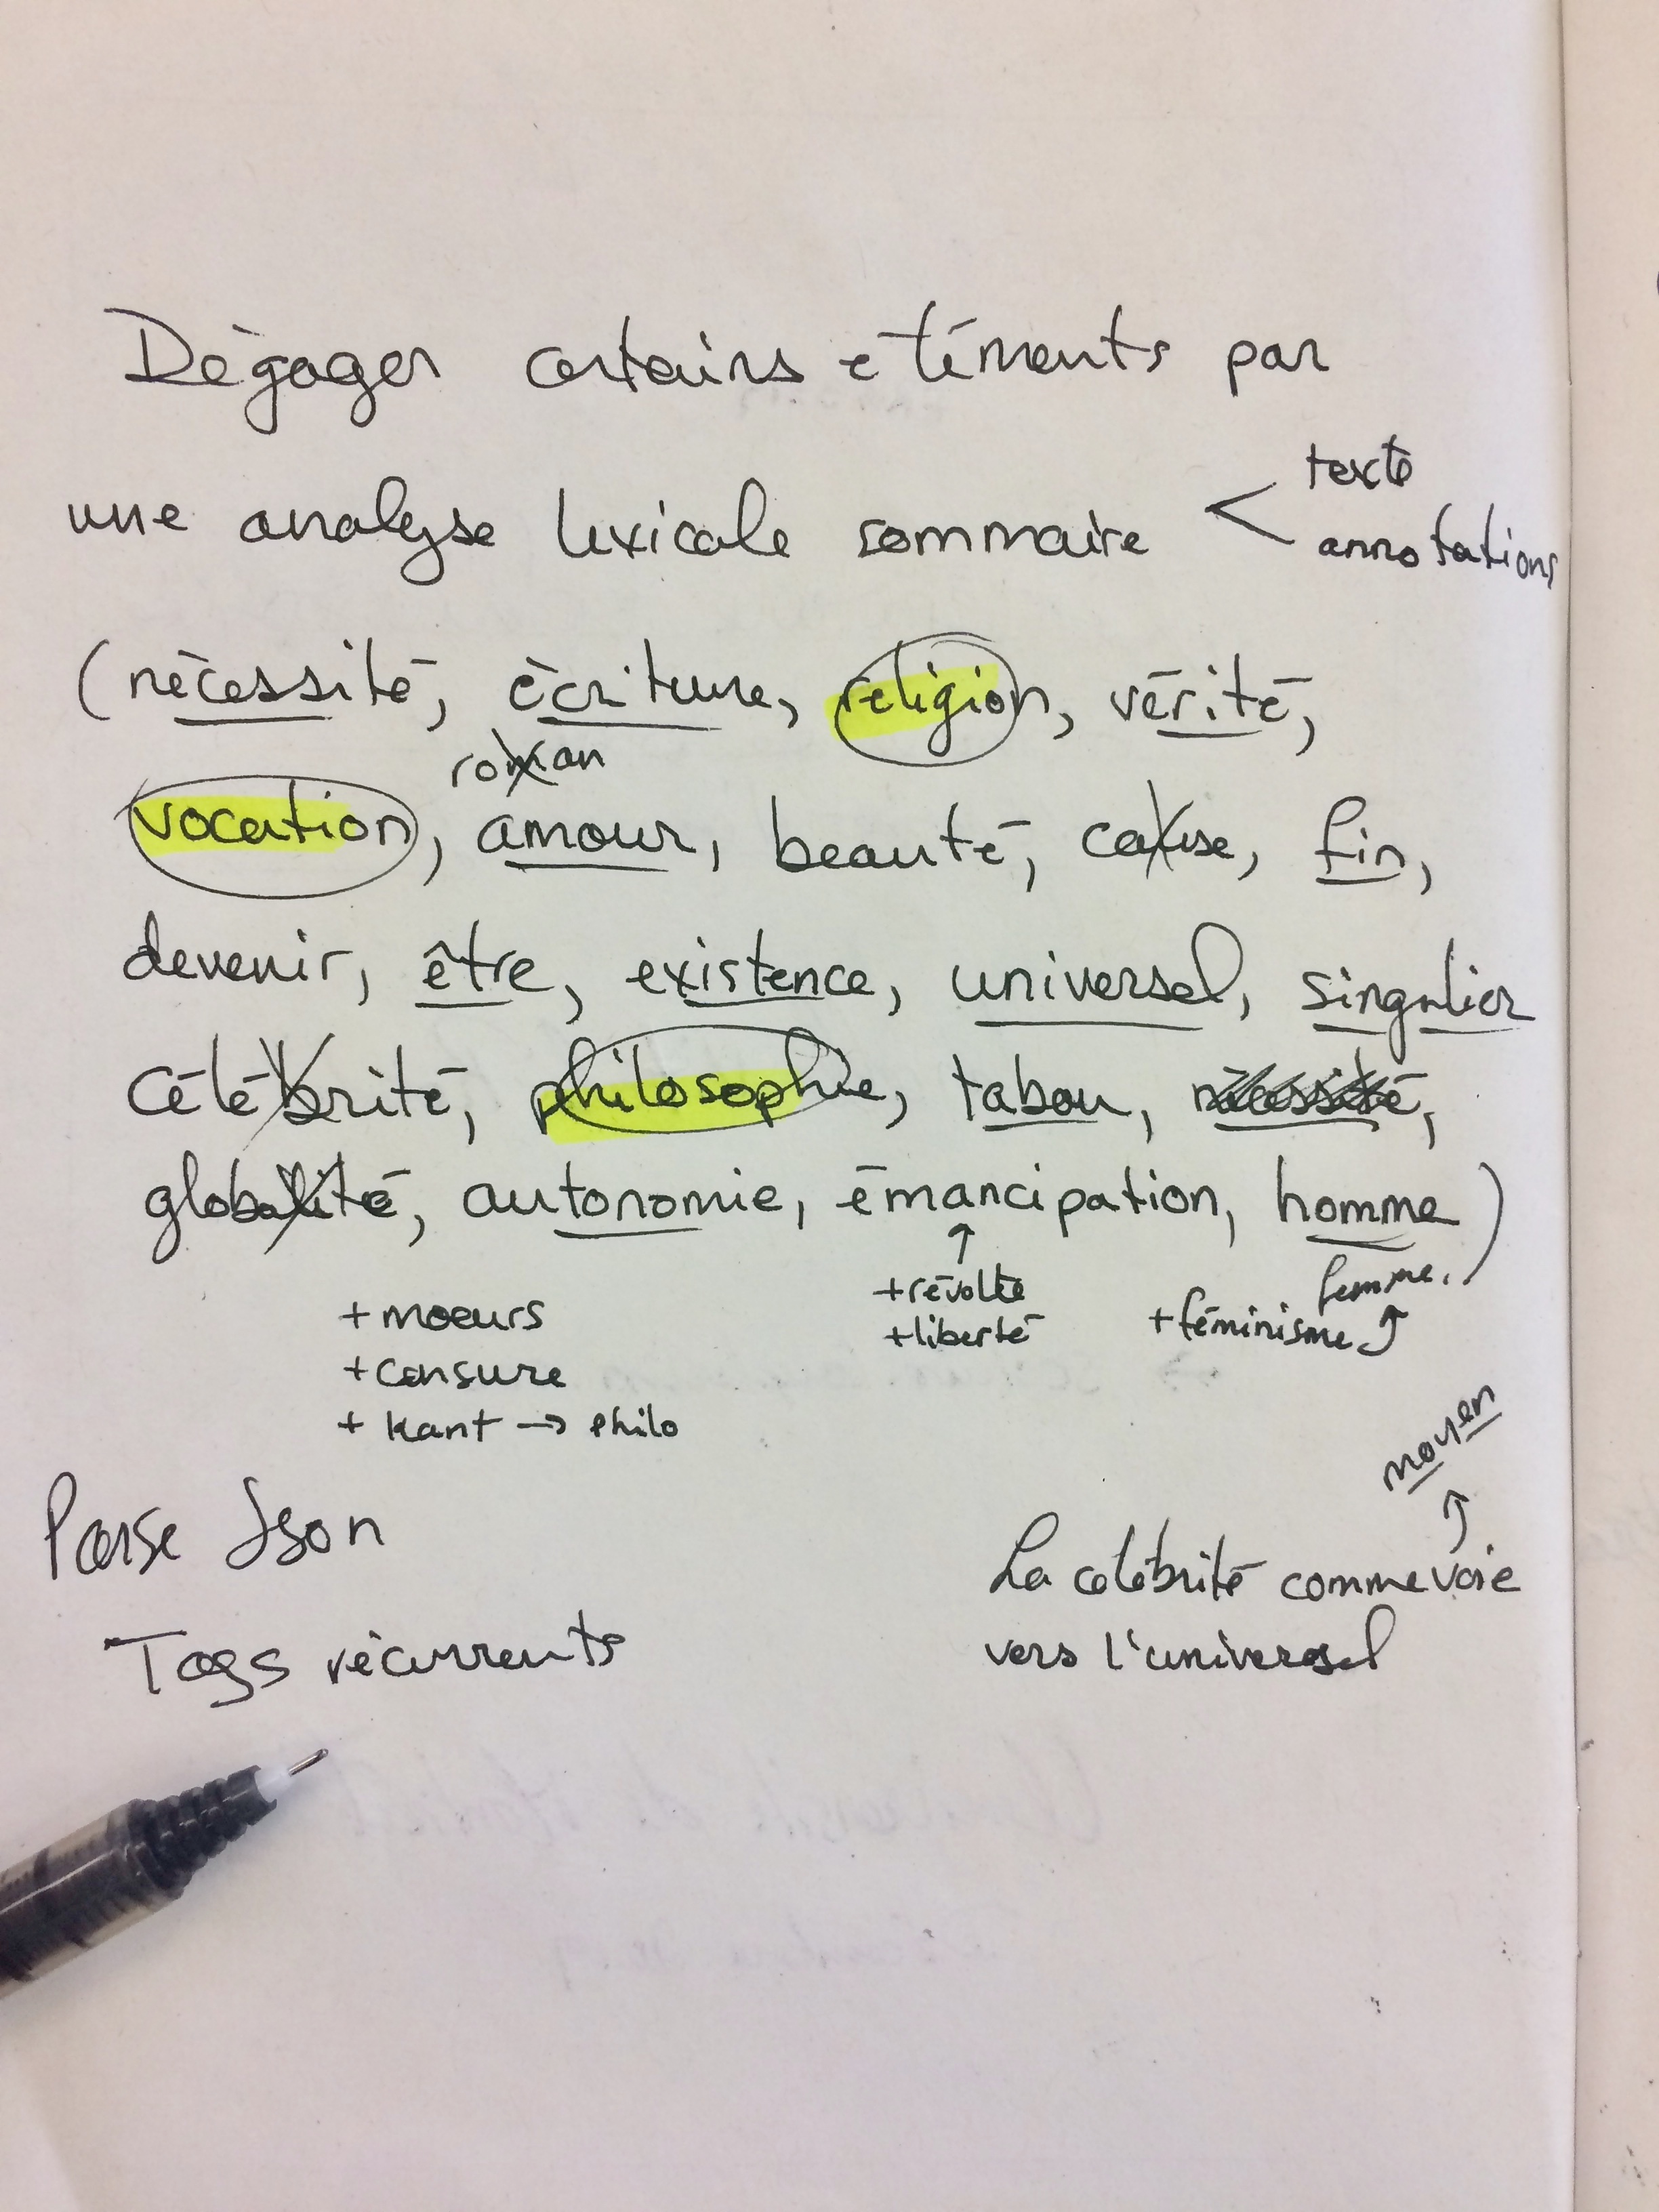 Dégager certains éléments par
une analyse lexicale sommaire < texte
annotations
(nécessité, écriture, religion, vérité,
roman
vocation, amour, beauté, cause, fin,
devenir, être, existence, universel, singulier
célébrité, philosophie, tabou, nécessité,
globalité, autonomie, émancipation, homme)
femme,)
+ moeurs
+ censure
+ Kant → philo
+révolte
+liberté
+féminisme
moyen
Parse Json
Tags récurrents
La célébrité comme voie
vers l'universel